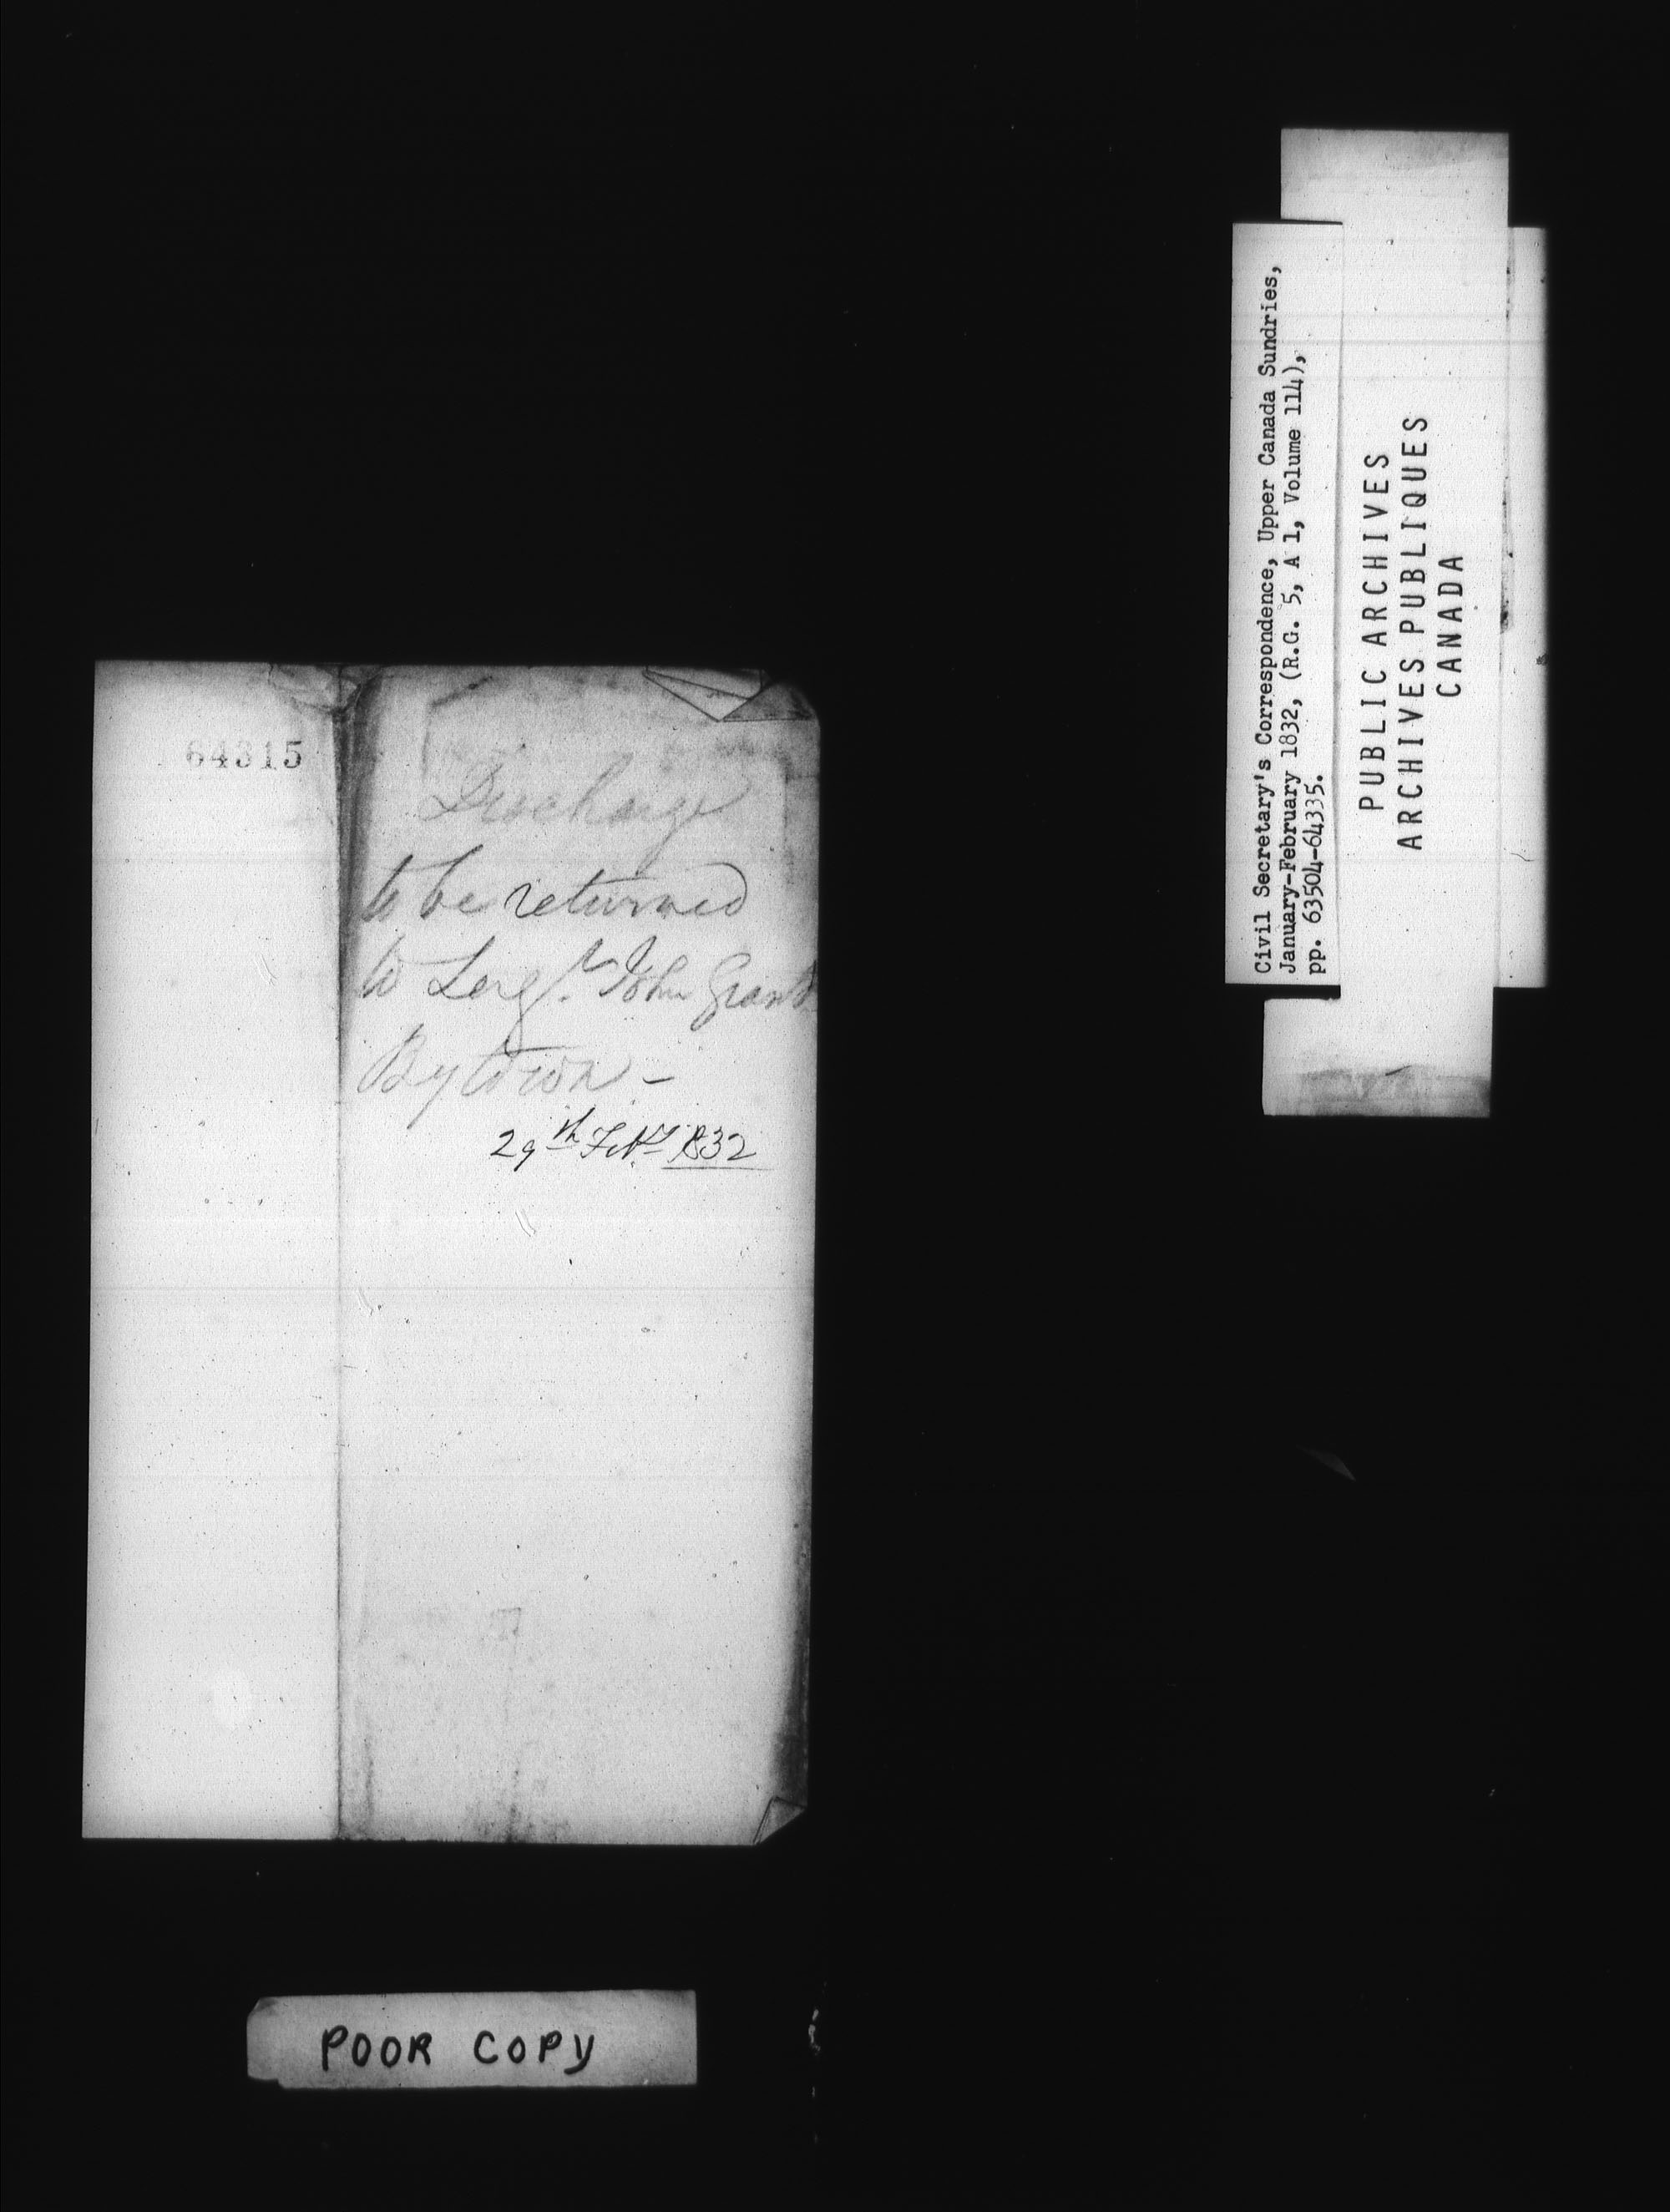 64315
Discharge
to be returned
to Sergt. John Grant
Bytown -
29th Feby 1832
POOR COPY
Civil Secretary's Correspondence, Upper Canada Sundries,
January-February 1832, (R.G. 5, A 1, Volume 114),
pp. 63504-64335.
PUBLIC ARCHIVES
ARCHIVES PUBLIQUES
CANADA